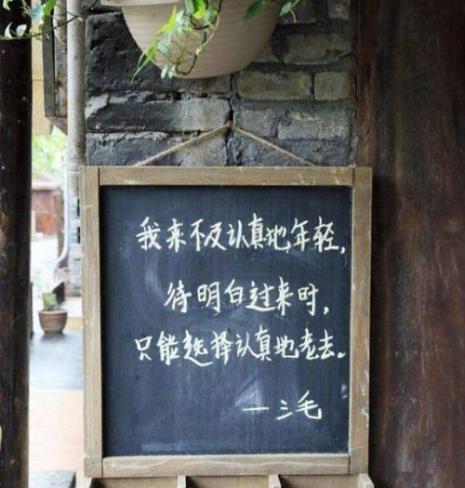 我来不及认真地年轻,
待明白过来时,
只能选择认真地老去。
—三毛